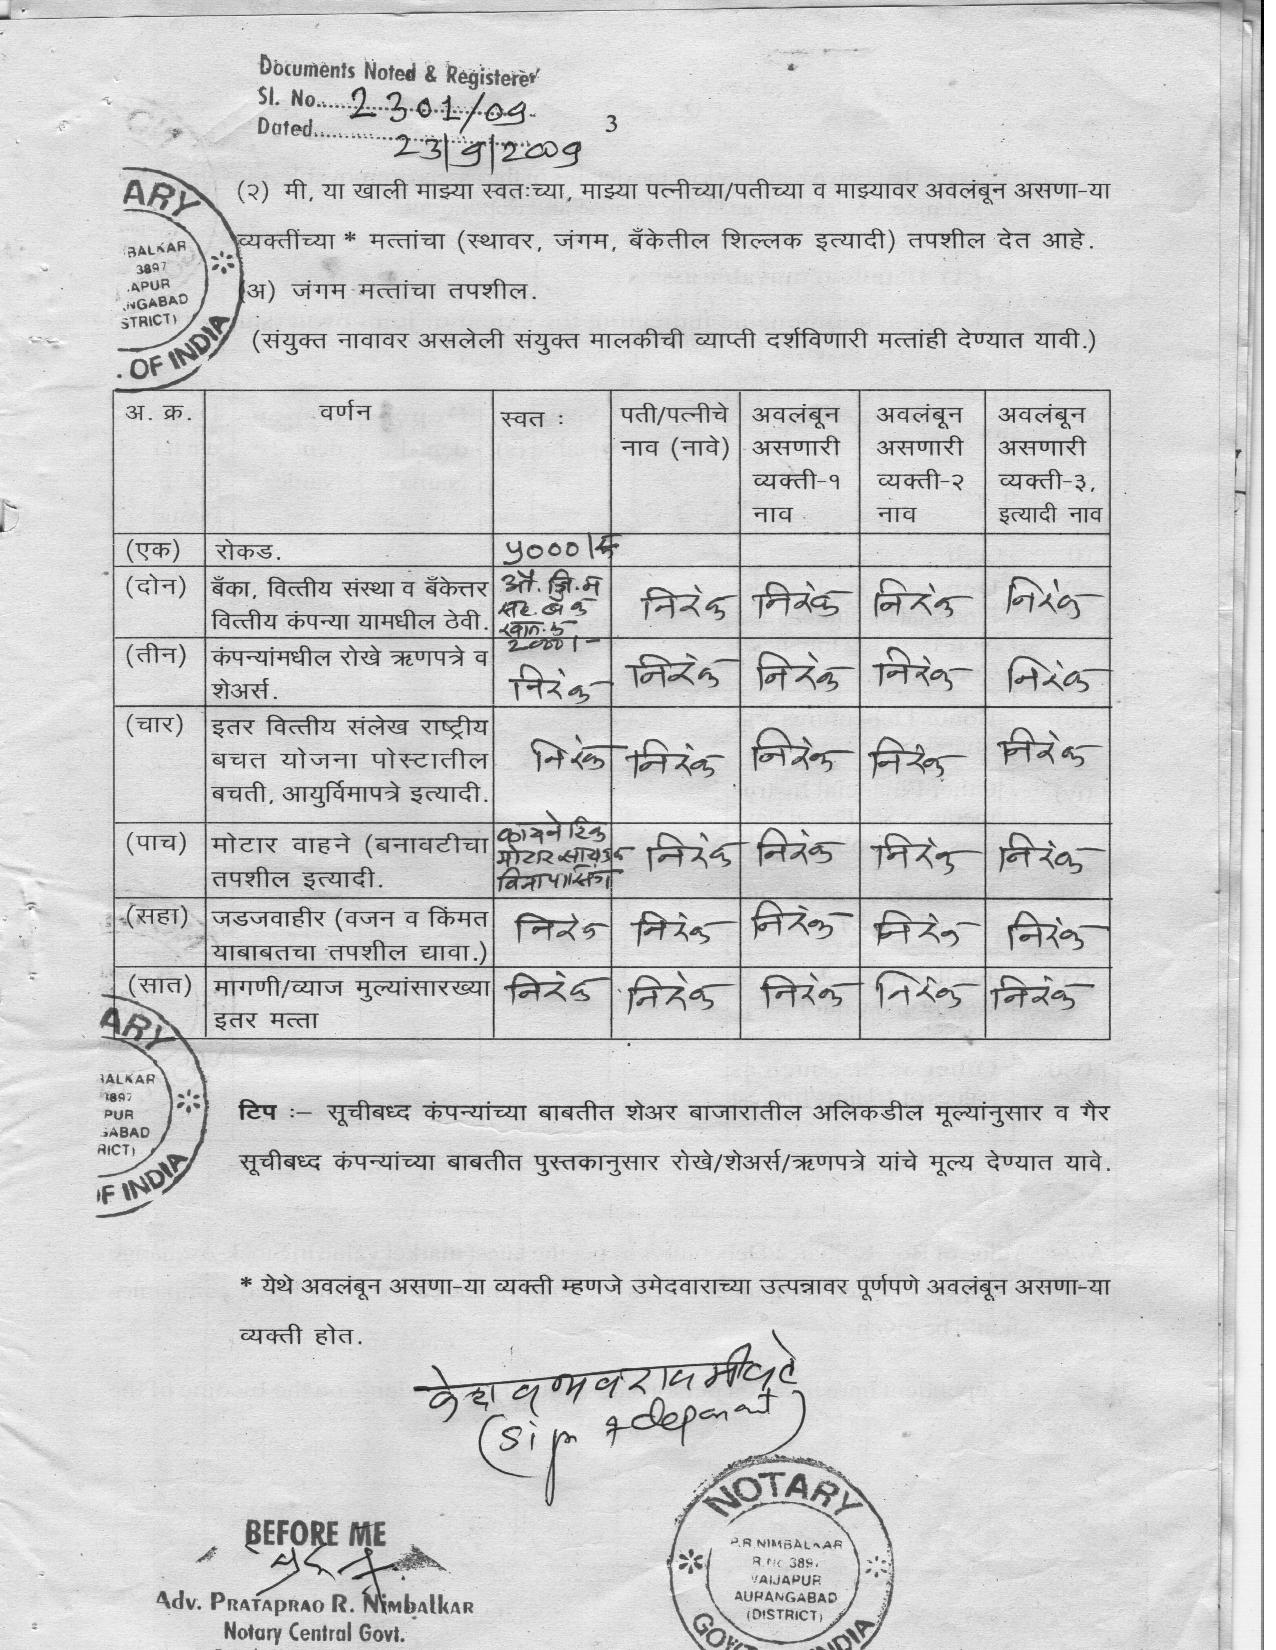 Documents Noted & Registerer
Sl. No. 2301/09
Dated 23/9/2009
3
(२) मी, या खाली माझ्या स्वतःच्या, माझ्या पत्नीच्या/पतीच्या व माझ्यावर अवलंबून असणा-या
व्यक्तींच्या * मत्तांचा (स्थावर, जंगम, बँकेतील शिल्लक इत्यादी) तपशील देत आहे.
(अ) जंगम मत्तांचा तपशील.
(संयुक्त नावावर असलेली संयुक्त मालकीची व्याप्ती दर्शविणारी मत्तांही देण्यात यावी.)
अ. क्र. वर्णन स्वत : पती/पत्नीचे नाव (नावे) अवलंबून असणारी व्यक्ती-१ नाव अवलंबून असणारी व्यक्ती-२ नाव अवलंबून असणारी व्यक्ती-३, इत्यादी नाव
(एक) रोकड. ५०००/रु
(दोन) बँका, वित्तीय संस्था व बँकेत्तर वित्तीय कंपन्या यामधील ठेवी. औ. जि. म सह. बँक २०००/- निरंक निरंक निरंक निरंक
(तीन) कंपन्यांमधील रोखे ऋणपत्रे व शेअर्स. निरंक निरंक निरंक निरंक निरंक
(चार) इतर वित्तीय संलेख राष्ट्रीय बचत योजना पोस्टातील बचती, आयुर्विमापत्रे इत्यादी. निरंक निरंक निरंक निरंक निरंक
(पाच) मोटार वाहने (बनावटीचा तपशील इत्यादी. मोटार सायकल निरंक निरंक निरंक निरंक
(सहा) जडजवाहीर (वजन व किंमत याबाबतचा तपशील द्यावा.) निरंक निरंक निरंक निरंक निरंक
(सात) मागणी/व्याज मुल्यांसारख्या इतर मत्ता निरंक निरंक निरंक निरंक निरंक
टिप :– सूचीबध्द कंपन्यांच्या बाबतीत शेअर बाजारातील अलिकडील मूल्यांनुसार व गैर
सूचीबध्द कंपन्यांच्या बाबतीत पुस्तकानुसार रोखे/शेअर्स/ऋणपत्रे यांचे मूल्य देण्यात यावे.
* येथे अवलंबून असणा-या व्यक्ती म्हणजे उमेदवाराच्या उत्पन्नावर पूर्णपणे अवलंबून असणा-या
व्यक्ती होत.
BEFORE ME
Adv. PRATAPRAO R. NIMBALKAR
Notary Central Govt.
NOTARY
P.R. NIMBALKAR
R.No. 3897
VAIJAPUR
AURANGABAD
(DISTRICT)